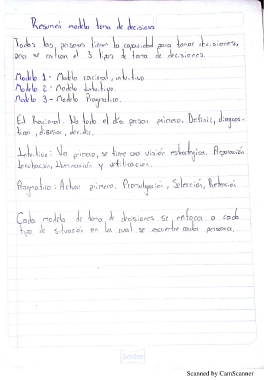 Resumen modelo toma de decisiones
Todas las personas tienen la capacidad para tomar decisiones,
pero se enfocan el 3 tipos de toma de decisiones.
Modelo 1- Modelo racional, intuitivo
Modelo 2- Modelo Intuitivo.
Modelo 3- Modelo Pragmatico.
El Racional. No todo el día pensar primero. Definir, diagnos-
ticar, diseñar, decidir.
Intuitivo: Ver primero, se tiene una visión estrategica. Preparación
Incubación, Iluminación y verificacion.
Pragmatico: Actuar primero. Promulgación, Selección, Retención
Cada modelo de toma de decisiones se enfoca a cada
tipo de situación en la cual se encuentre cada persona.
Scanned by CamScanner